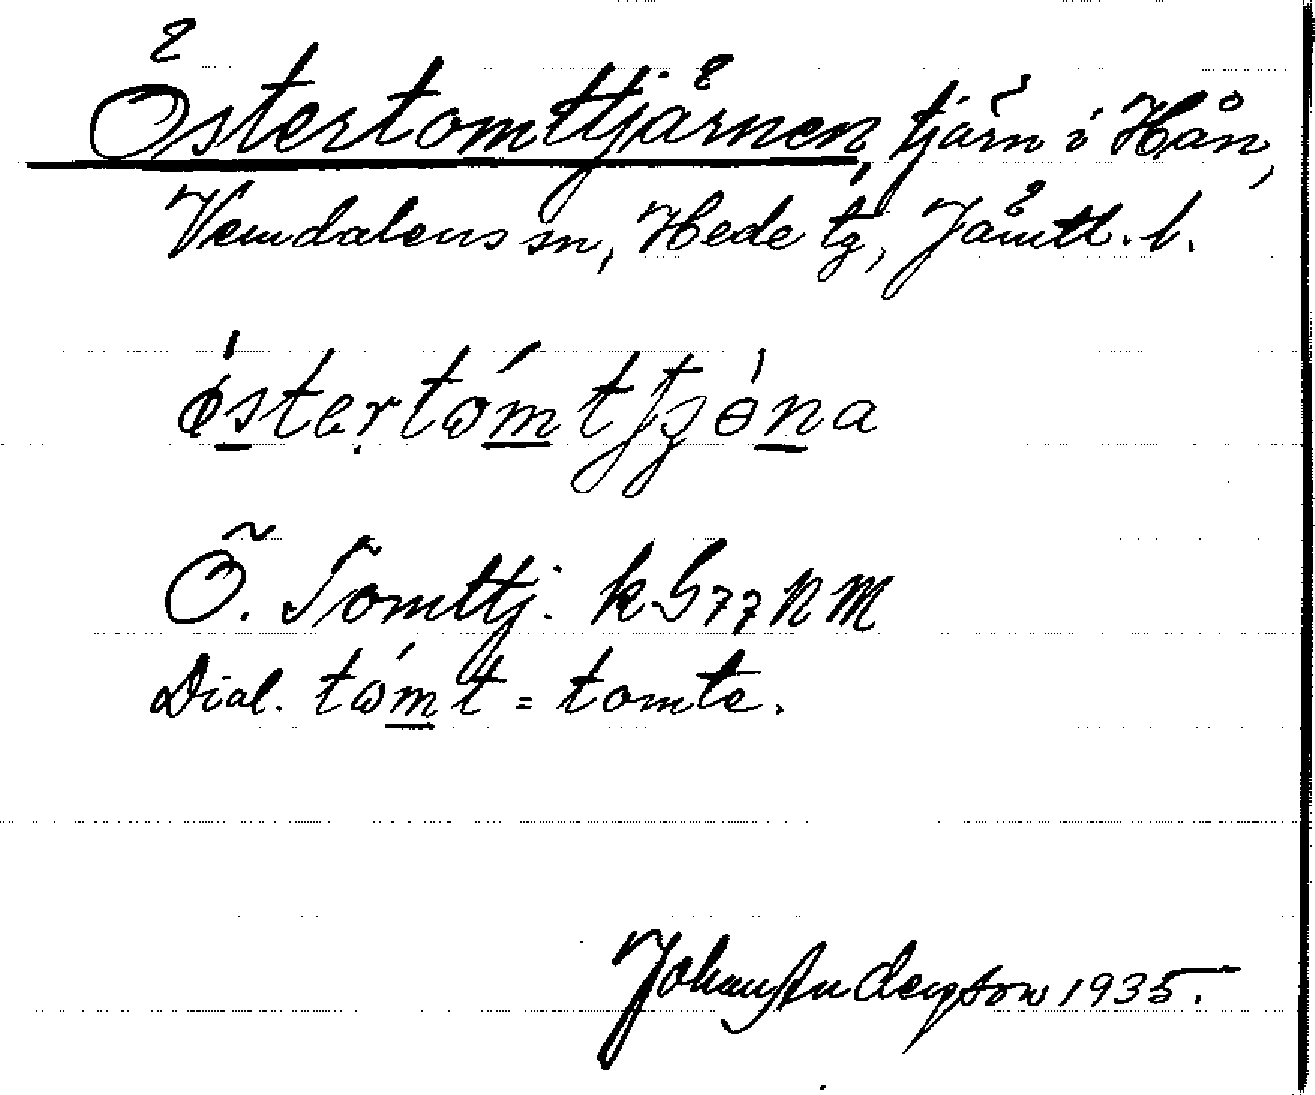 Östertomttjärnen, tjärn i Hån,
Vemdalens sn, Hede tg, Jämtl. l.
Ö. Tomttj. k G77NM
Dial. tómt = tomte.
Johan Anderson 1935.